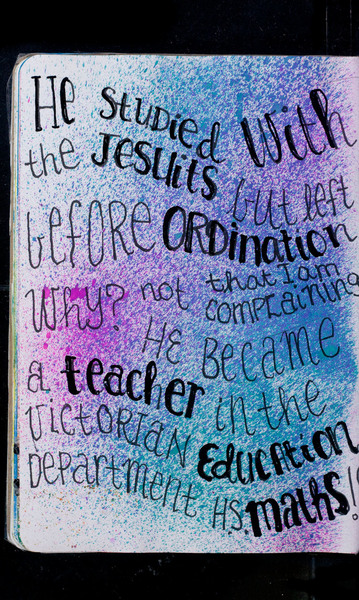 He studied with
the Jesuits but left
before ordination
Why? not that I am
complaining
He became
a teacher in the
Victorian Education
Department H.S. maths!